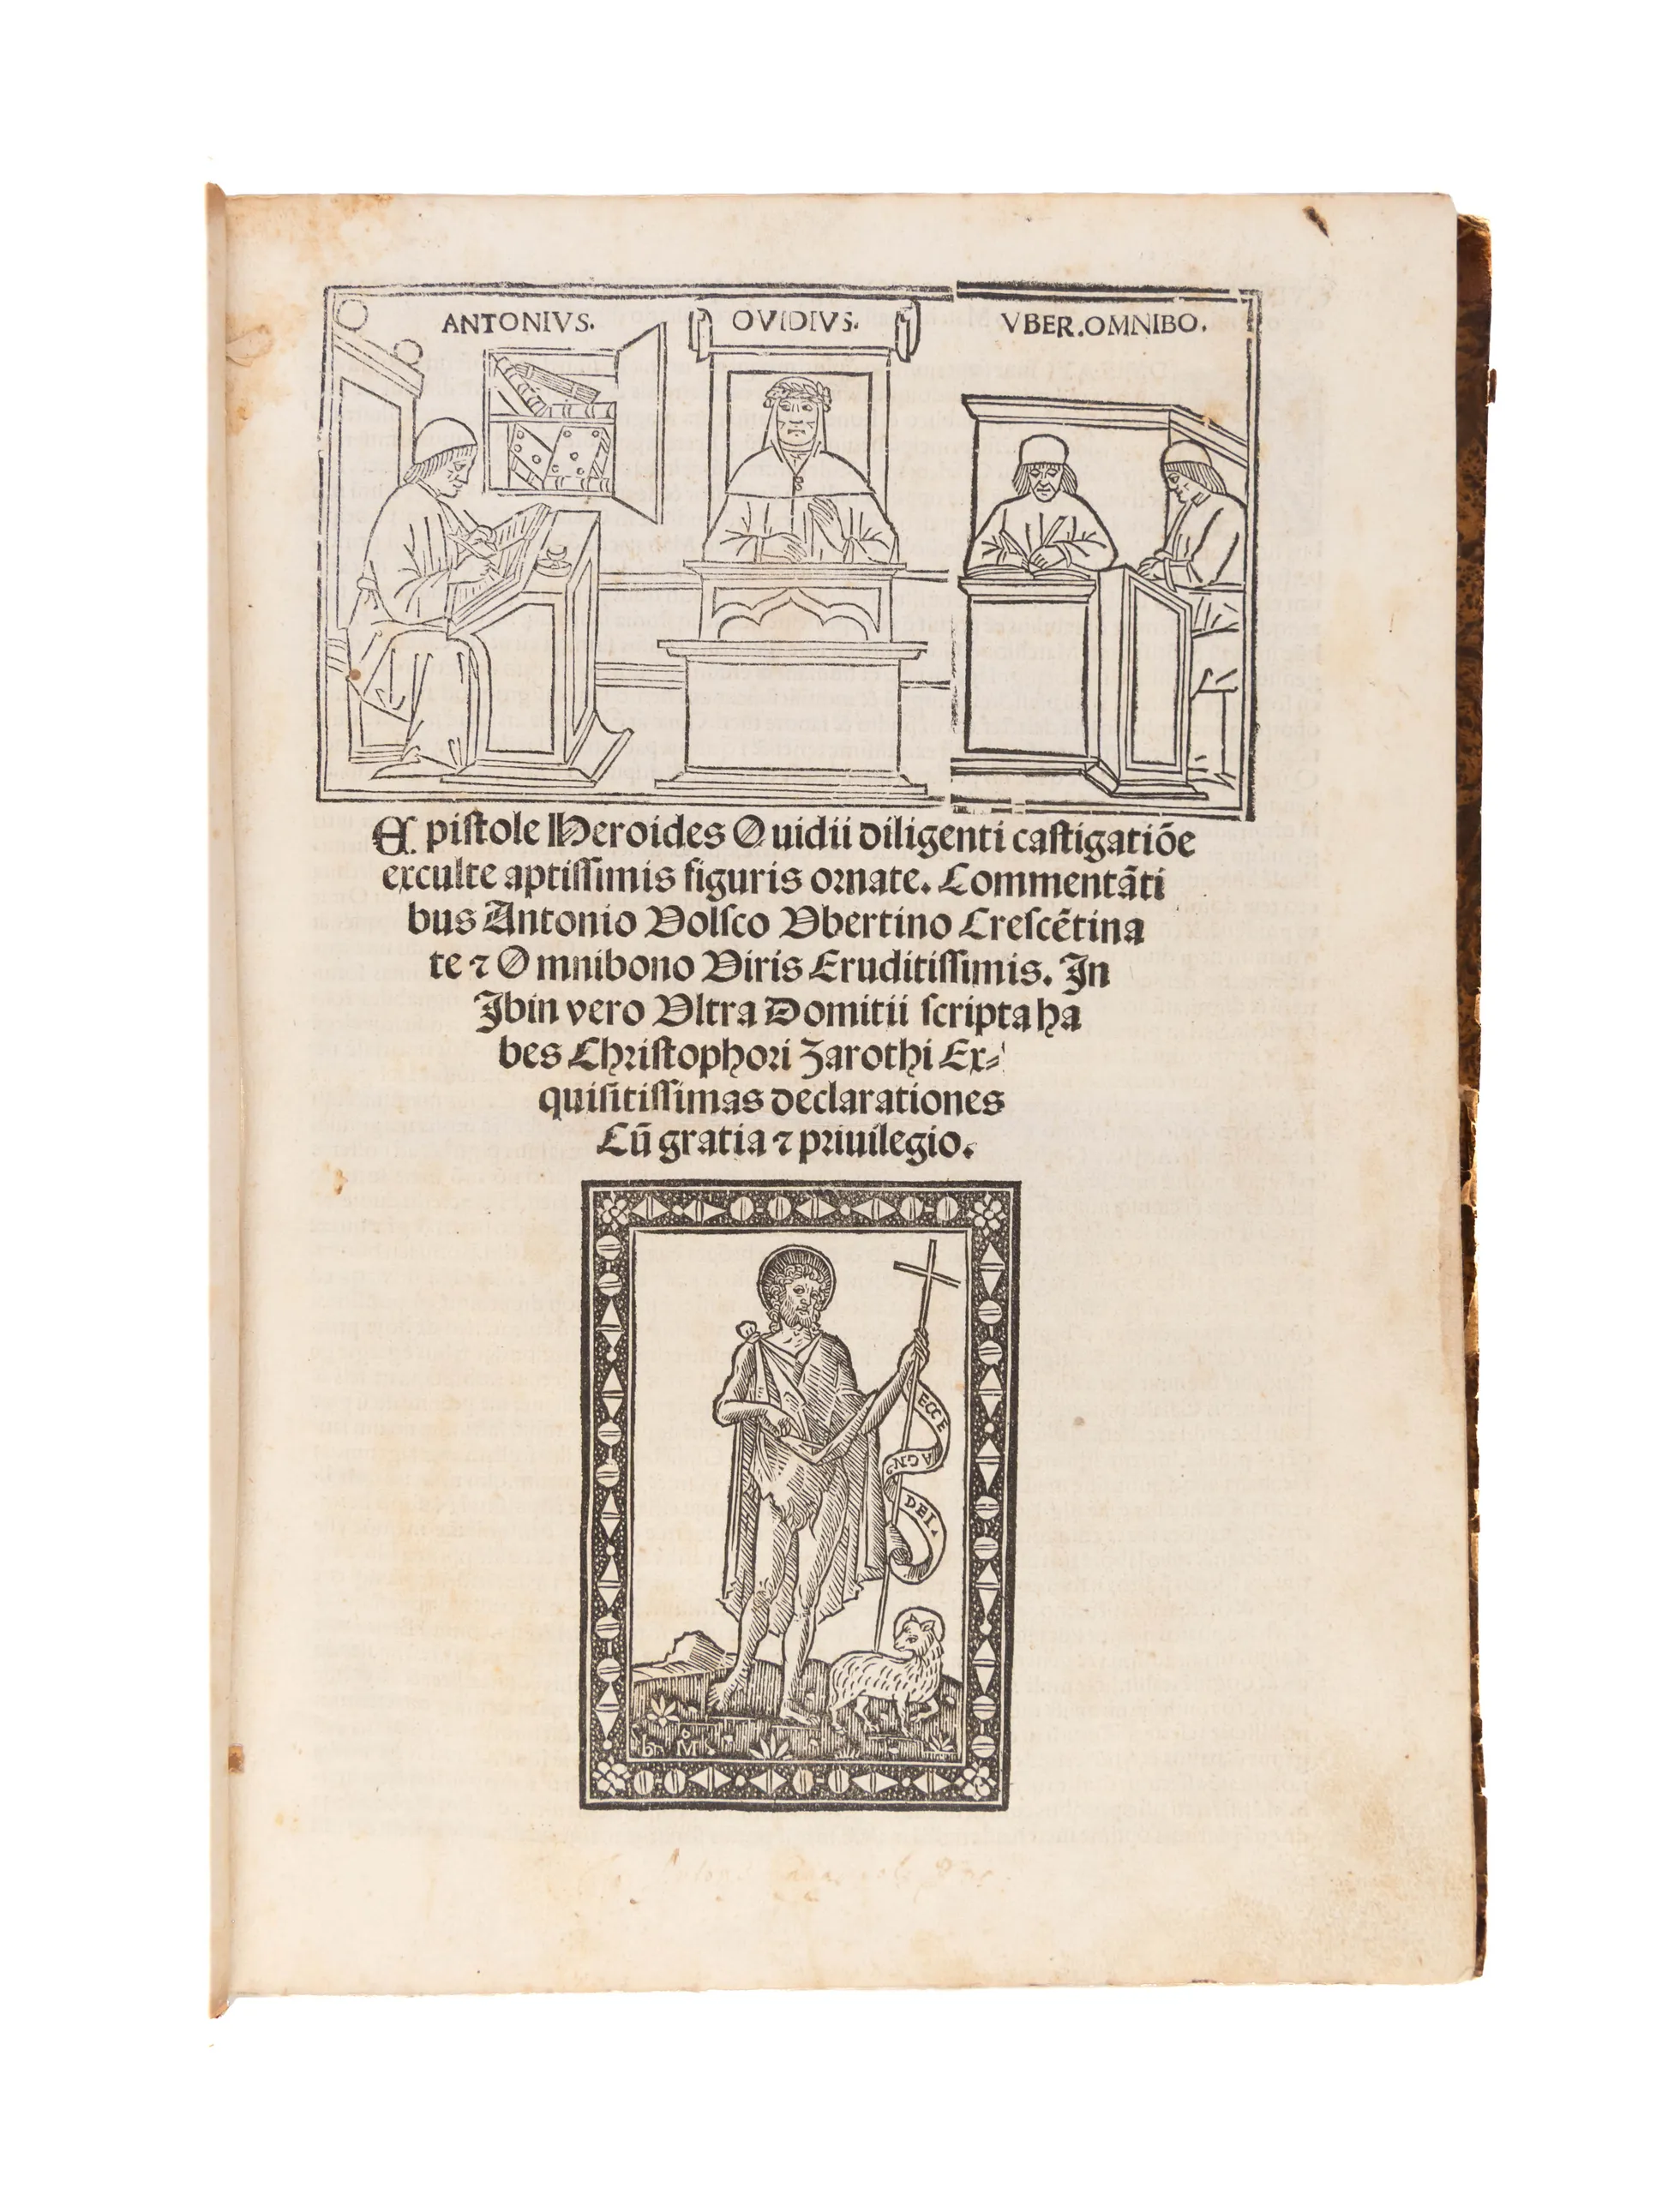 ANTONIVS. OVIDIVS. VBER.OMNIBO.
Epistole Heroides Ouidii diligenti castigatiōe
exculte aptissimis figuris ornate. Commentāti
bus Antonio Volsco Vbertino Crescētina
te ⁊ Omnibono Viris Eruditissimis. In
Ibin vero Vltra Domitii scripta ha
bes Christophori Zarothi Ex⸗
quisitissimas declarationes
Cū gratia ⁊ priuilegio.
ECCE
AGNꝰ
DEI.